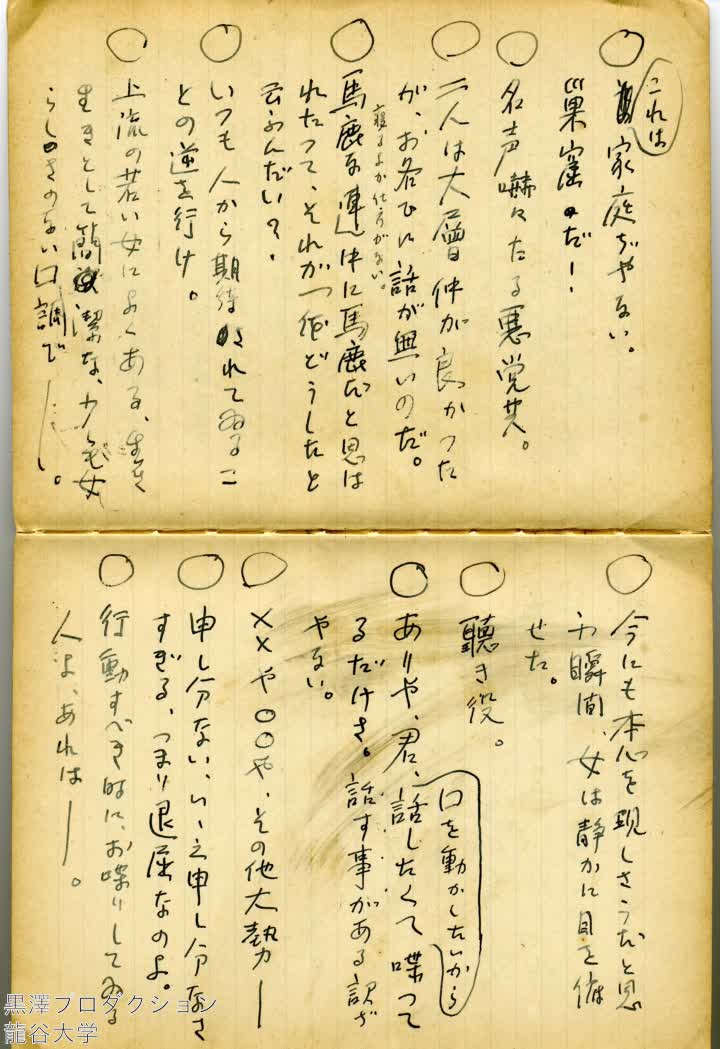 これは
家庭ぢやない。
巣窟だ！
名声嚇々たる悪党共。
二人は大層仲が良かつた
が、お各ひに話が無いのだ。
寝るより仕方がない。
馬鹿な連中に馬鹿だと思は
れたつて、それが一体どうしたと
云ふんだい？
いつも人から期待されてゐるこ
との逆を行け。
上流の若い女によくある、生き
生きとして簡潔な、少しも女
らしさのない口調で――。
今にも本心を現しさうだと思
つた瞬間、女は静かに目を俯
せた。
聴き役。
口を動かしたいから
ありや、君、話したくて喋つて
るだけさ。話す事がある訳ぢ
やない。
××や○○や、その他大勢――
申し分ない、いゝえ申し分なさ
すぎる、つまり退屈なのよ。
行動すべき時に、お喋りしてゐる
人よ、あれは――。
黒澤プロダクション
龍谷大学